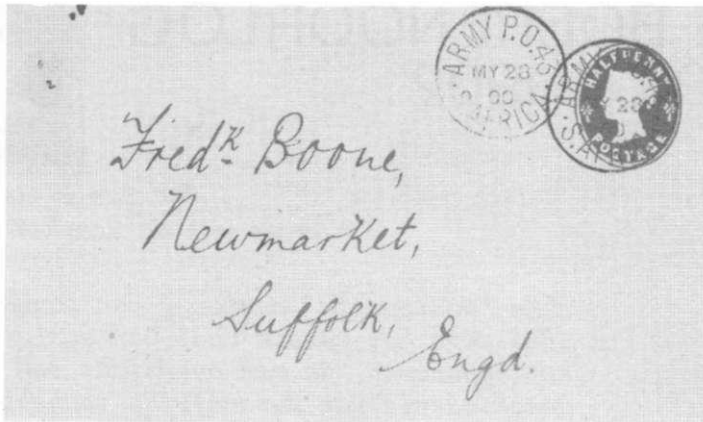 ARMY P.O. 43
MY 28
00
S. AFRICA
HALFPENNY
POSTAGE
Fredk Boone,
Newmarket,
Suffolk,
Engd.